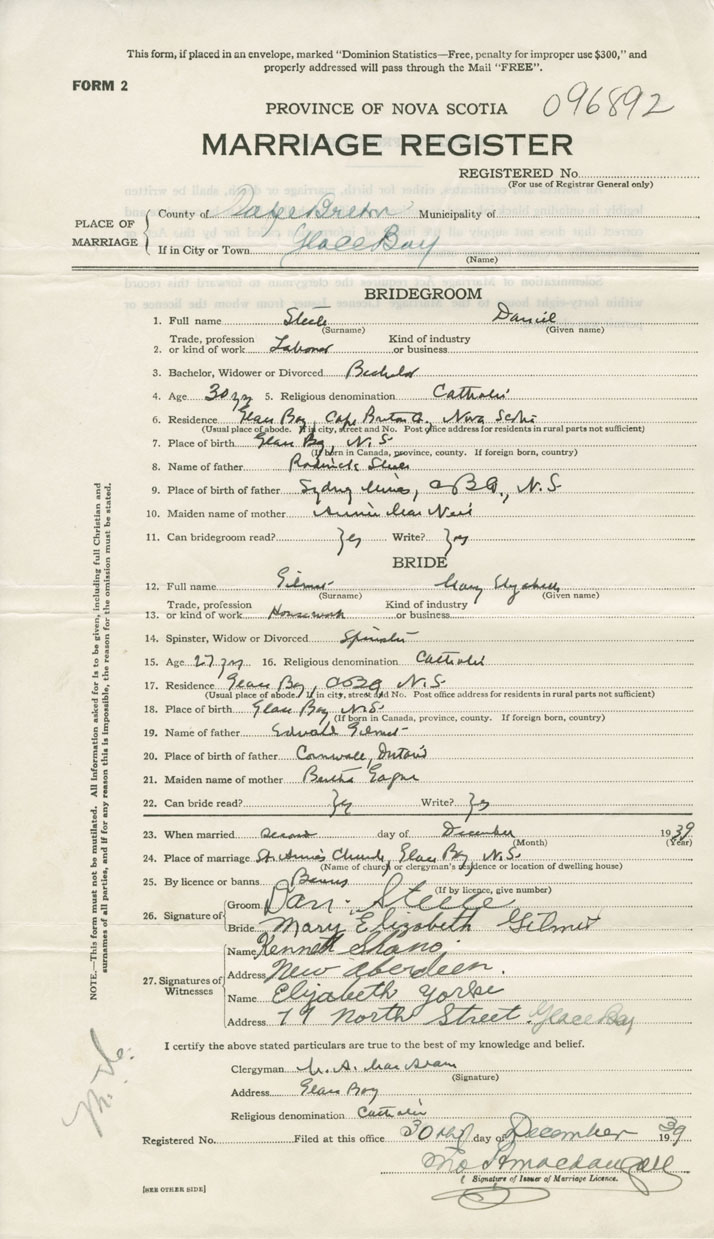 This form, if placed in an envelope, marked "Dominion Statistics—Free, penalty for improper use $300," and
properly addressed will pass through the Mail "FREE".
FORM 2
PROVINCE OF NOVA SCOTIA 096892
MARRIAGE REGISTER
REGISTERED No.
(For use of Registrar General only)
PLACE OF MARRIAGE
County of Cape Breton Municipality of
If in City or Town Glace Bay
(Name)
BRIDEGROOM
1. Full name Steele Daniel
(Surname) (Given name)
Trade, profession Kind of industry
2. or kind of work Laborer or business
3. Bachelor, Widower or Divorced Bachelor
4. Age 30 yrs 5. Religious denomination Catholic
6. Residence Glace Bay, Cape Breton Co., Nova Scotia
(Usual place of abode. If in city, street and No. Post office address for residents in rural parts not sufficient)
7. Place of birth Glace Bay, N.S.
(If born in Canada, province, county. If foreign born, country)
8. Name of father Roderick Steele
9. Place of birth of father Sydney Mines, C.B. Co., N.S.
10. Maiden name of mother Annie Mac Neil
11. Can bridegroom read? yes Write? yes
BRIDE
12. Full name Gilmet Mary Elizabeth
(Surname) (Given name)
Trade, profession Kind of industry
13. or kind of work Housework or business
14. Spinster, Widow or Divorced Spinster
15. Age 27 yrs 16. Religious denomination Catholic
17. Residence Glace Bay, N.S.
(Usual place of abode. If in city, street and No. Post office address for residents in rural parts not sufficient)
18. Place of birth Glace Bay N.S.
(If born in Canada, province, county. If foreign born, country)
19. Name of father Edward Gilmet
20. Place of birth of father Cornwall, Ontario
21. Maiden name of mother Bertha
22. Can bride read? yes Write? yes
23. When married second day of December 1939
(Month) (Year)
24. Place of marriage St. Anne's Church, Glace Bay, N.S.
(Name of church or clergyman's residence or location of dwelling house)
25. By licence or banns Banns
(If by licence, give number)
26. Signature of
Groom Dan. Steele
Bride Mary Elizabeth Gilmet
27. Signatures of Witnesses
Name Kenneth
Address New Aberdeen.
Name Elizabeth Yorke
Address 79 North Street. Glace Bay
I certify the above stated particulars are true to the best of my knowledge and belief.
Clergyman
(Signature)
Address Glace Bay
Religious denomination Catholic
Registered No. Filed at this office 30th day of December 1939
Signature of Issuer of Marriage Licence.
[SEE OTHER SIDE]
NOTE.—This form must not be mutilated. All information asked for is to be given, including full Christian and
surnames of all parties, and if for any reason this is impossible, the reason for the omission must be stated.